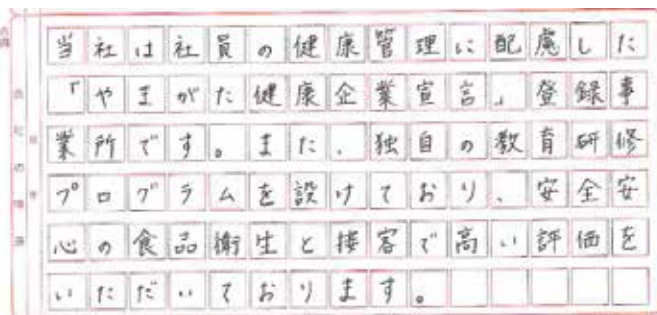 当社は社員の健康管理に配慮した
「やまがた健康企業宣言」登録事
業所です。また、独自の教育研修
プログラムを設けており、安全安
心の食品衛生と接客で高い評価を
いただいております。